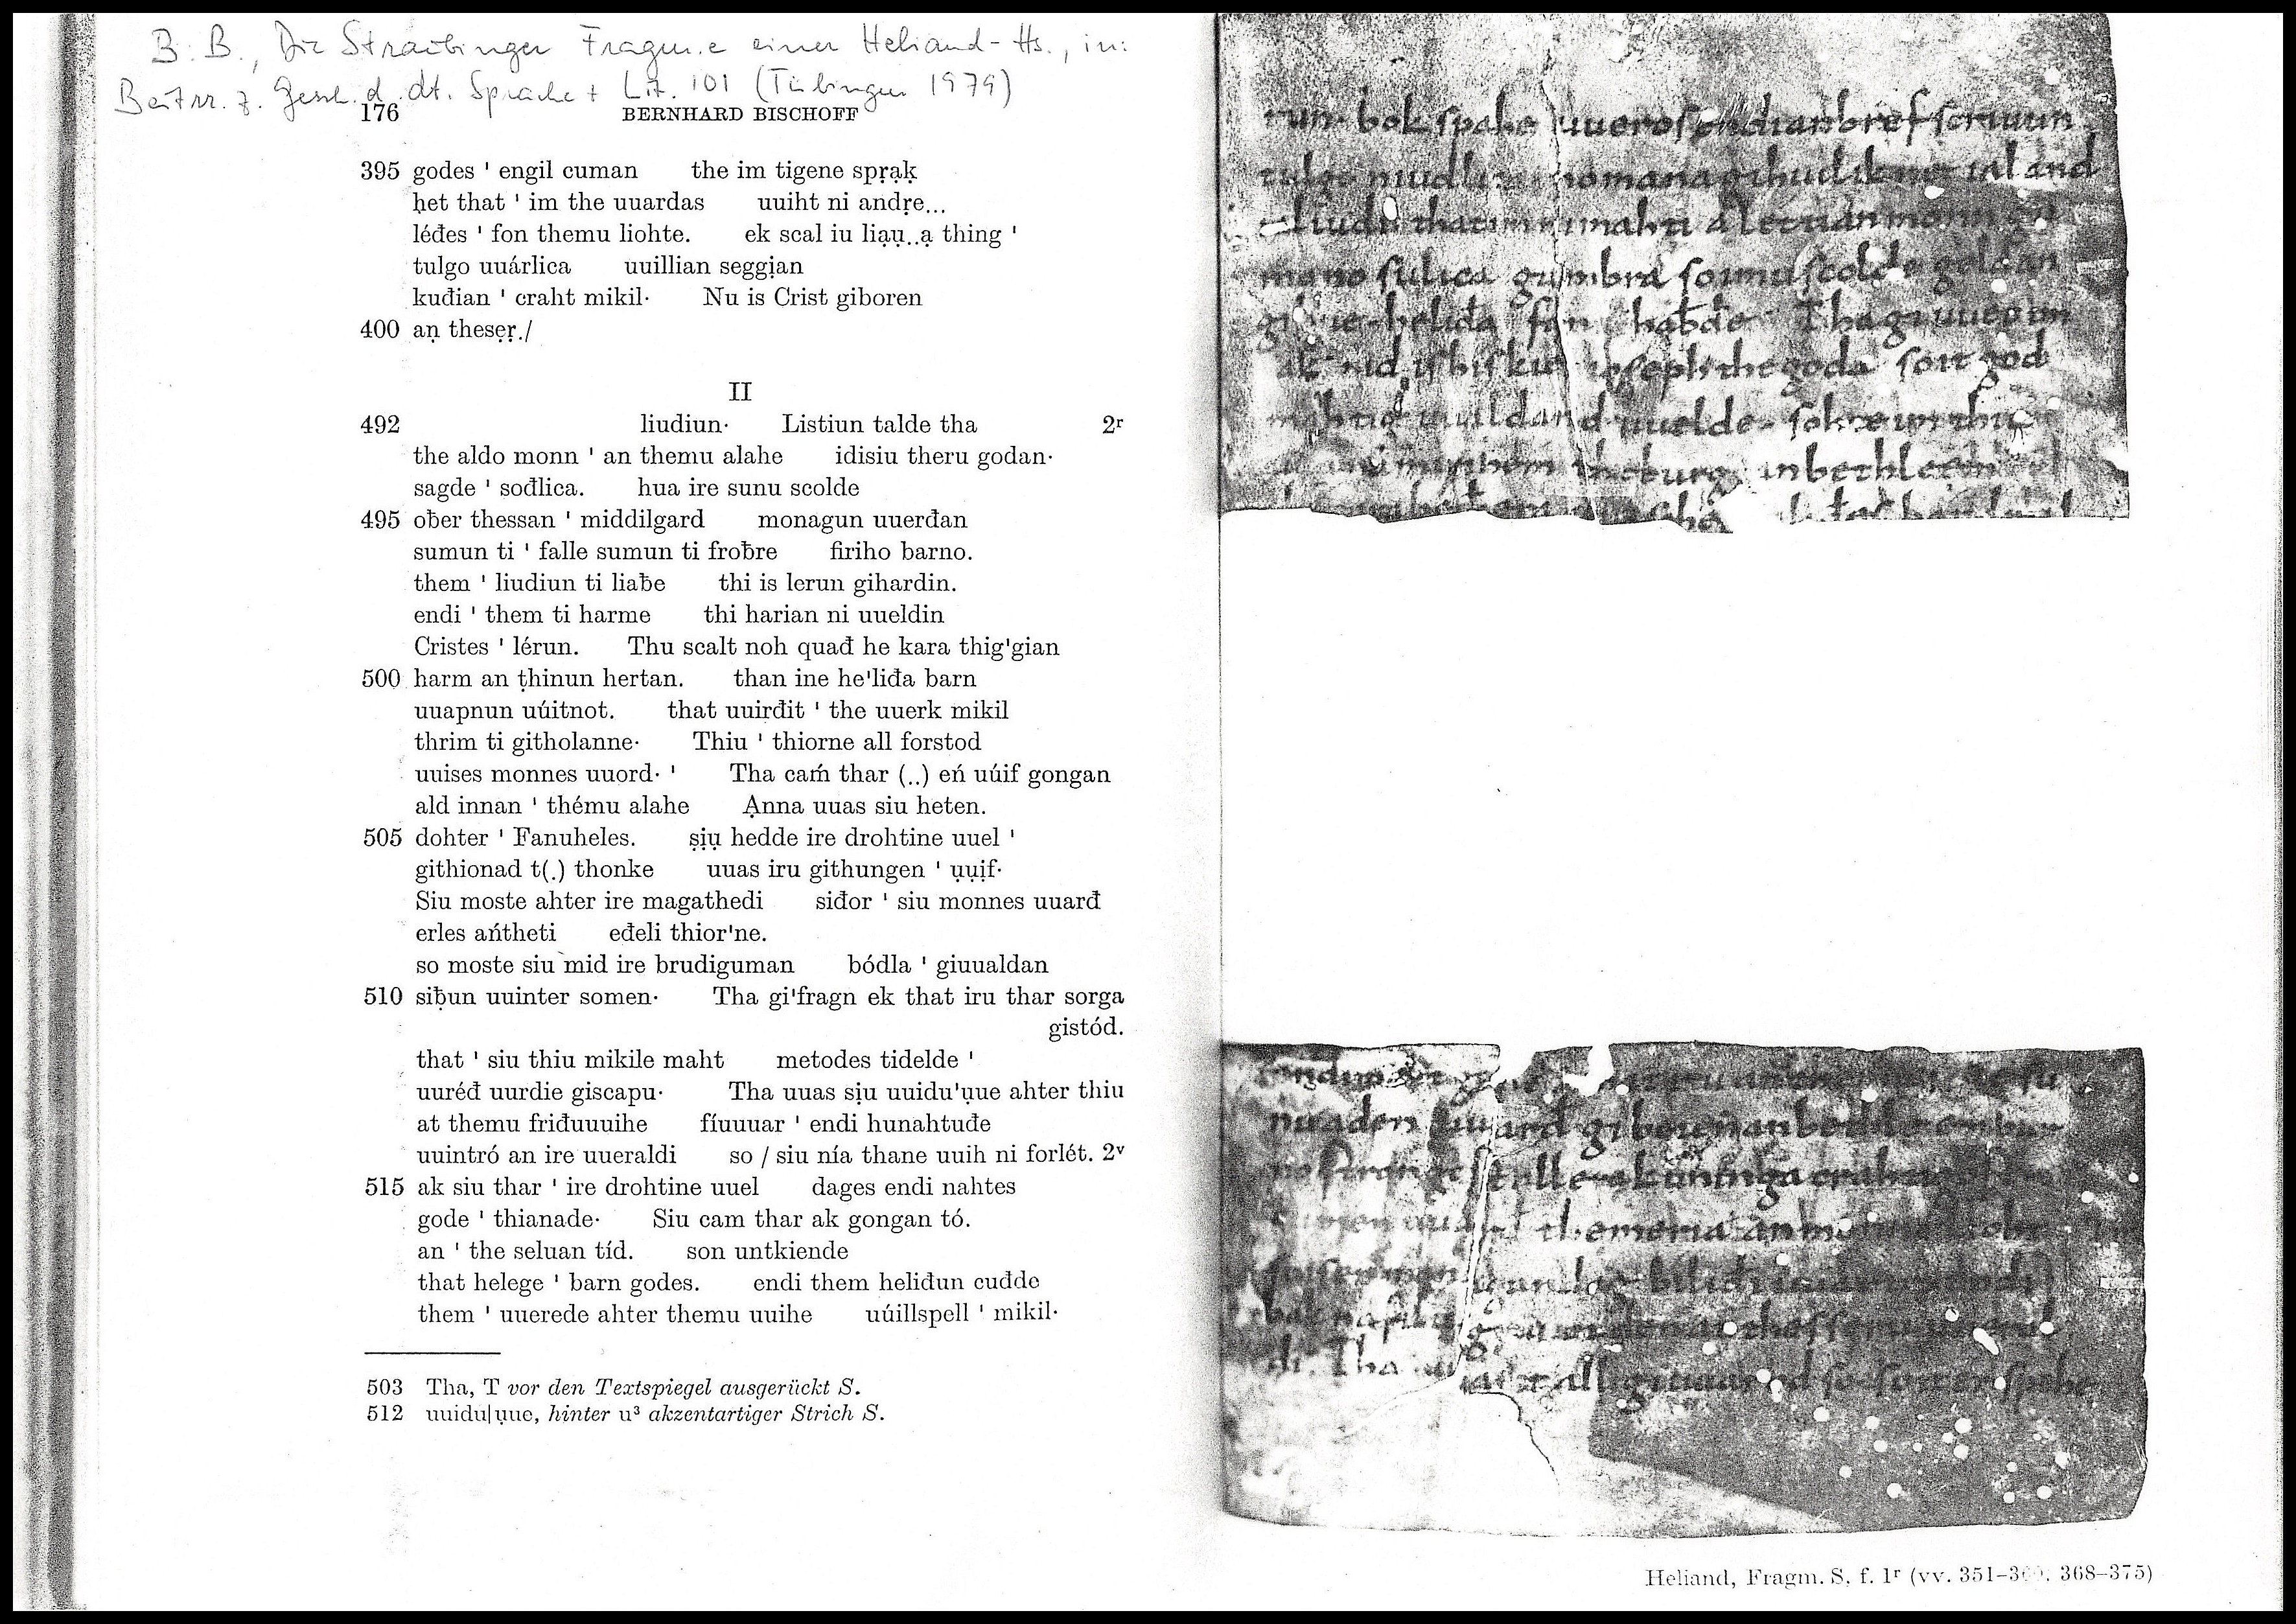 B. B., Die Straubinger Fragm.e einer Heliand-Hs., in:
Beitrr. z. Gesch. d. dt. Sprache + Lit. 101 (Tübingen 1979)
176 BERNHARD BISCHOFF
395 godes ' engil cuman the im tigene sprạḳ
ḥet that ' im the uuardas uuiht ni andṛe...
léđes ' fon themu liohte. ek scal iu liạụ..ạ thing '
tulgo uuárlica uuillian seggịan
kuđian ' craht mikil· Nu is Crist giboren
400 aṇ theseṛ./
II
492 liudiun· Listiun talde tha 2ʳ
the aldo monn ' an themu alahe idisiu theru godan·
sagde ' sođlica. hua ire sunu scolde
495 oƀer thessan ' middilgard monagun uuerđan
sumun ti ' falle sumun ti froƀre firiho barno.
them ' liudiun ti liaƀe thi is lerun gihardin.
endi ' them ti harme thi harian ni uueldin
Cristes ' lérun. Thu scalt noh quađ he kara thig'gian
500 harm an ṭhinun hertan. than ine he'liđa barn
uuapnun uúitnot. that uuirđit ' the uuerk mikil
thrim ti githolanne· Thiu ' thiorne all forstod
uuises monnes uuord· ' Tha caḿ thar (..) eń uúif gongan
ald innan ' thému alahe Ạnna uuas siu heten.
505 dohter ' Fanuheles. ṣịụ hedde ire drohtine uuel '
githionad t(.) thonke uuas iru githungen ' ụụịf·
Siu moste ahter ire magathedi siđor ' siu monnes uuarđ
erles ańtheti eđeli thior'ne.
so moste siu mid ire brudiguman bódla ' giuualdan
510 siƀun uuinter somen· Tha gi'fragn ek that iru thar sorga
gistód.
that ' siu thiu mikile maht metodes tidelde '
uuréđ uurdie giscapu· Tha uuas sịu uuidu'ụue ahter thiu
at themu friđuuuihe fíuuuar ' endi hunahtuđe
uuintró an ire uueraldi so / siu nía thane uuih ni forlét. 2ᵛ
515 ak siu thar ' ire drohtine uuel dages endi nahtes
gode ' thianade· Siu cam thar ak gongan tó.
an ' the seluan tíd. son untkiende
that helege ' barn godes. endi them heliđun cuđde
them ' uuerede ahter themu uuihe uúillspell ' mikil·
503 Tha, T vor den Textspiegel ausgerückt S.
512 uuidu|ụue, hinter u³ akzentartiger Strich S.
run· bok spahe uueros endi an bref scriuun
tulgo niudlico
liudi that im ni mahti aletti an mann
gumbra so imu scolde geldan
heliđa habde Tha giuuet im
ak mid is hiski ioseph the godo so it god
mahtig uualdand uuelde· sohte im thiu
theburg an bethleem
uuarđ giboren an bethleem
the meria an
bilidi
an thessaru
di. Tha uuas it all giuuarod so so it er spahe
Heliand, Fragm. S, f. 1ʳ (vv. 351–360; 368–375)